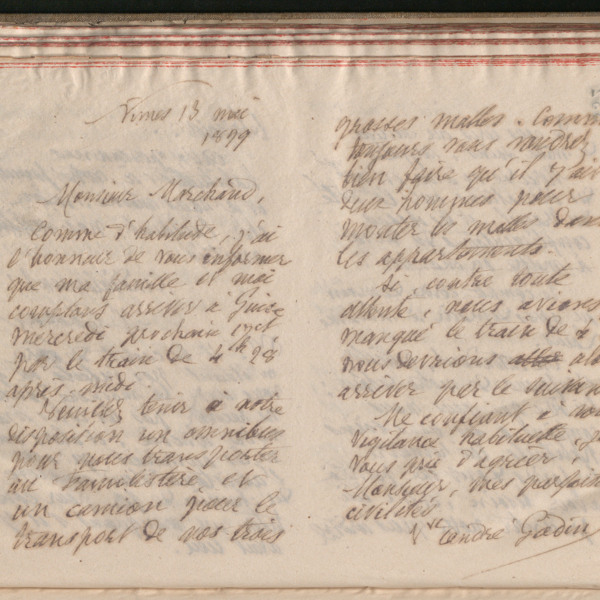 Nimes 13 mai
1899
Monsieur Marchand,
Comme d'habitude, j'ai
l'honneur de vous informer
que ma famille et moi
comptons arriver à Guise
mercredi prochain 17 ct
par le train de 4h 28
après-midi.
Veuillez tenir à notre
disposition un omnibus
pour nous transporter
au Familistère et
un camion pour le
transport de nos trois
grosses malles. Comm
toujours vous voudrez
bien faire qu'il y ait
deux hommes pour
monter les malles dans
les appartements.
Si, contre toute
attente, nous avions
manqué le train de 4
nous devrions alo
arriver par le suivan
Me confiant à vo
vigilance habituelle, j
vous prie d'agréer,
Monsieur, mes parfaits
civilités
Vve André Godin